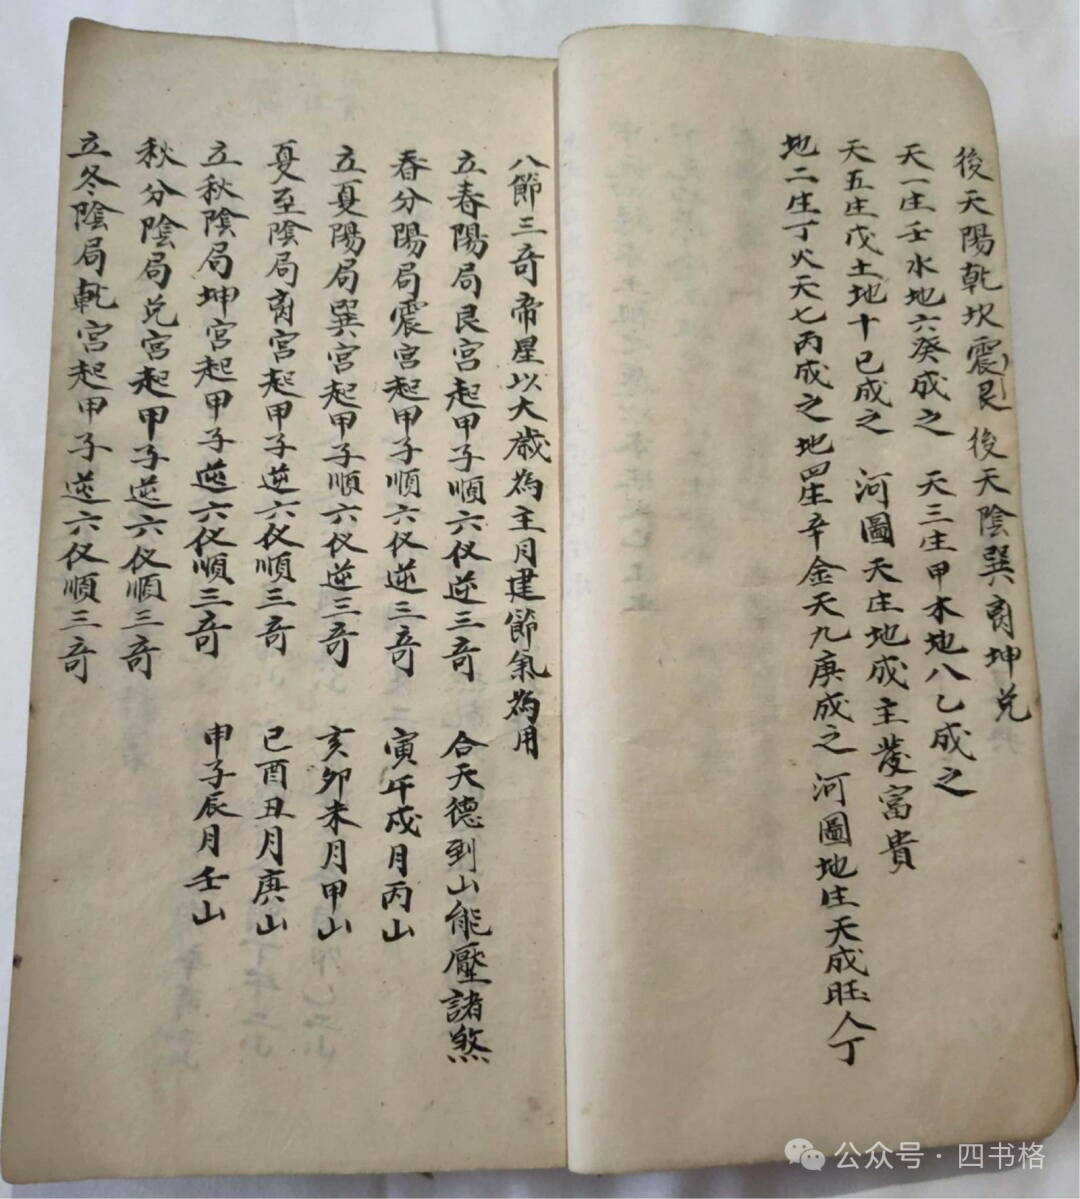 後天陽乾坎震艮 後天陰巽离坤兌
天一生壬水地六癸成之 天三生甲木地八乙成之
天五生戊土地十己成之 河圖天生地成主發富貴
地二生丁火天七丙成之地四生辛金天九庚成之 河圖地生天成旺人丁
八節三奇帝星以大歲為主月建節氣為用
立春陽局艮宮起甲子順六仪逆三奇 合天德到山能壓諸煞
春分陽局震宮起甲子順六仪逆三奇 寅午戌月丙山
立夏陽局巽宮起甲子順六仪逆三奇 亥卯未月甲山
夏至陰局离宮起甲子逆六仪順三奇 巳酉丑月庚山
立秋陰局坤宮起甲子逆六仪順三奇 申子辰月壬山
秋分陰局兌宮起甲子逆六仪順三奇
立冬陰局乾宮起甲子逆六仪順三奇
公众号·四书格